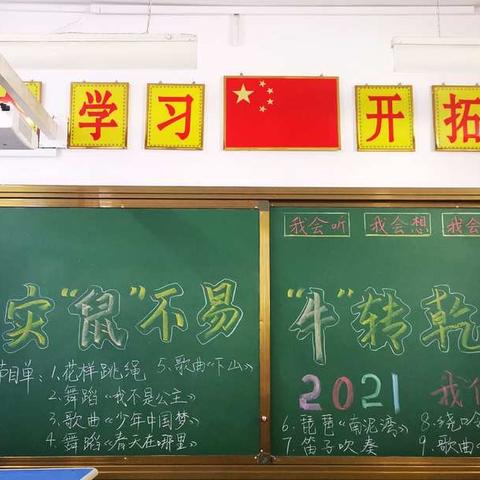 学 习 开 拓
我会听 我会想 我会
实“鼠”不易 “牛”转乾
节目单：1.花样跳绳 5.歌曲《下山》
2.舞蹈《我不是公主》
3.歌曲《少年中国梦》
4.舞蹈《春天在哪里》
2021 我们
6.琵琶《南泥湾》 8.绕口令
7.笛子吹奏 9.歌曲《